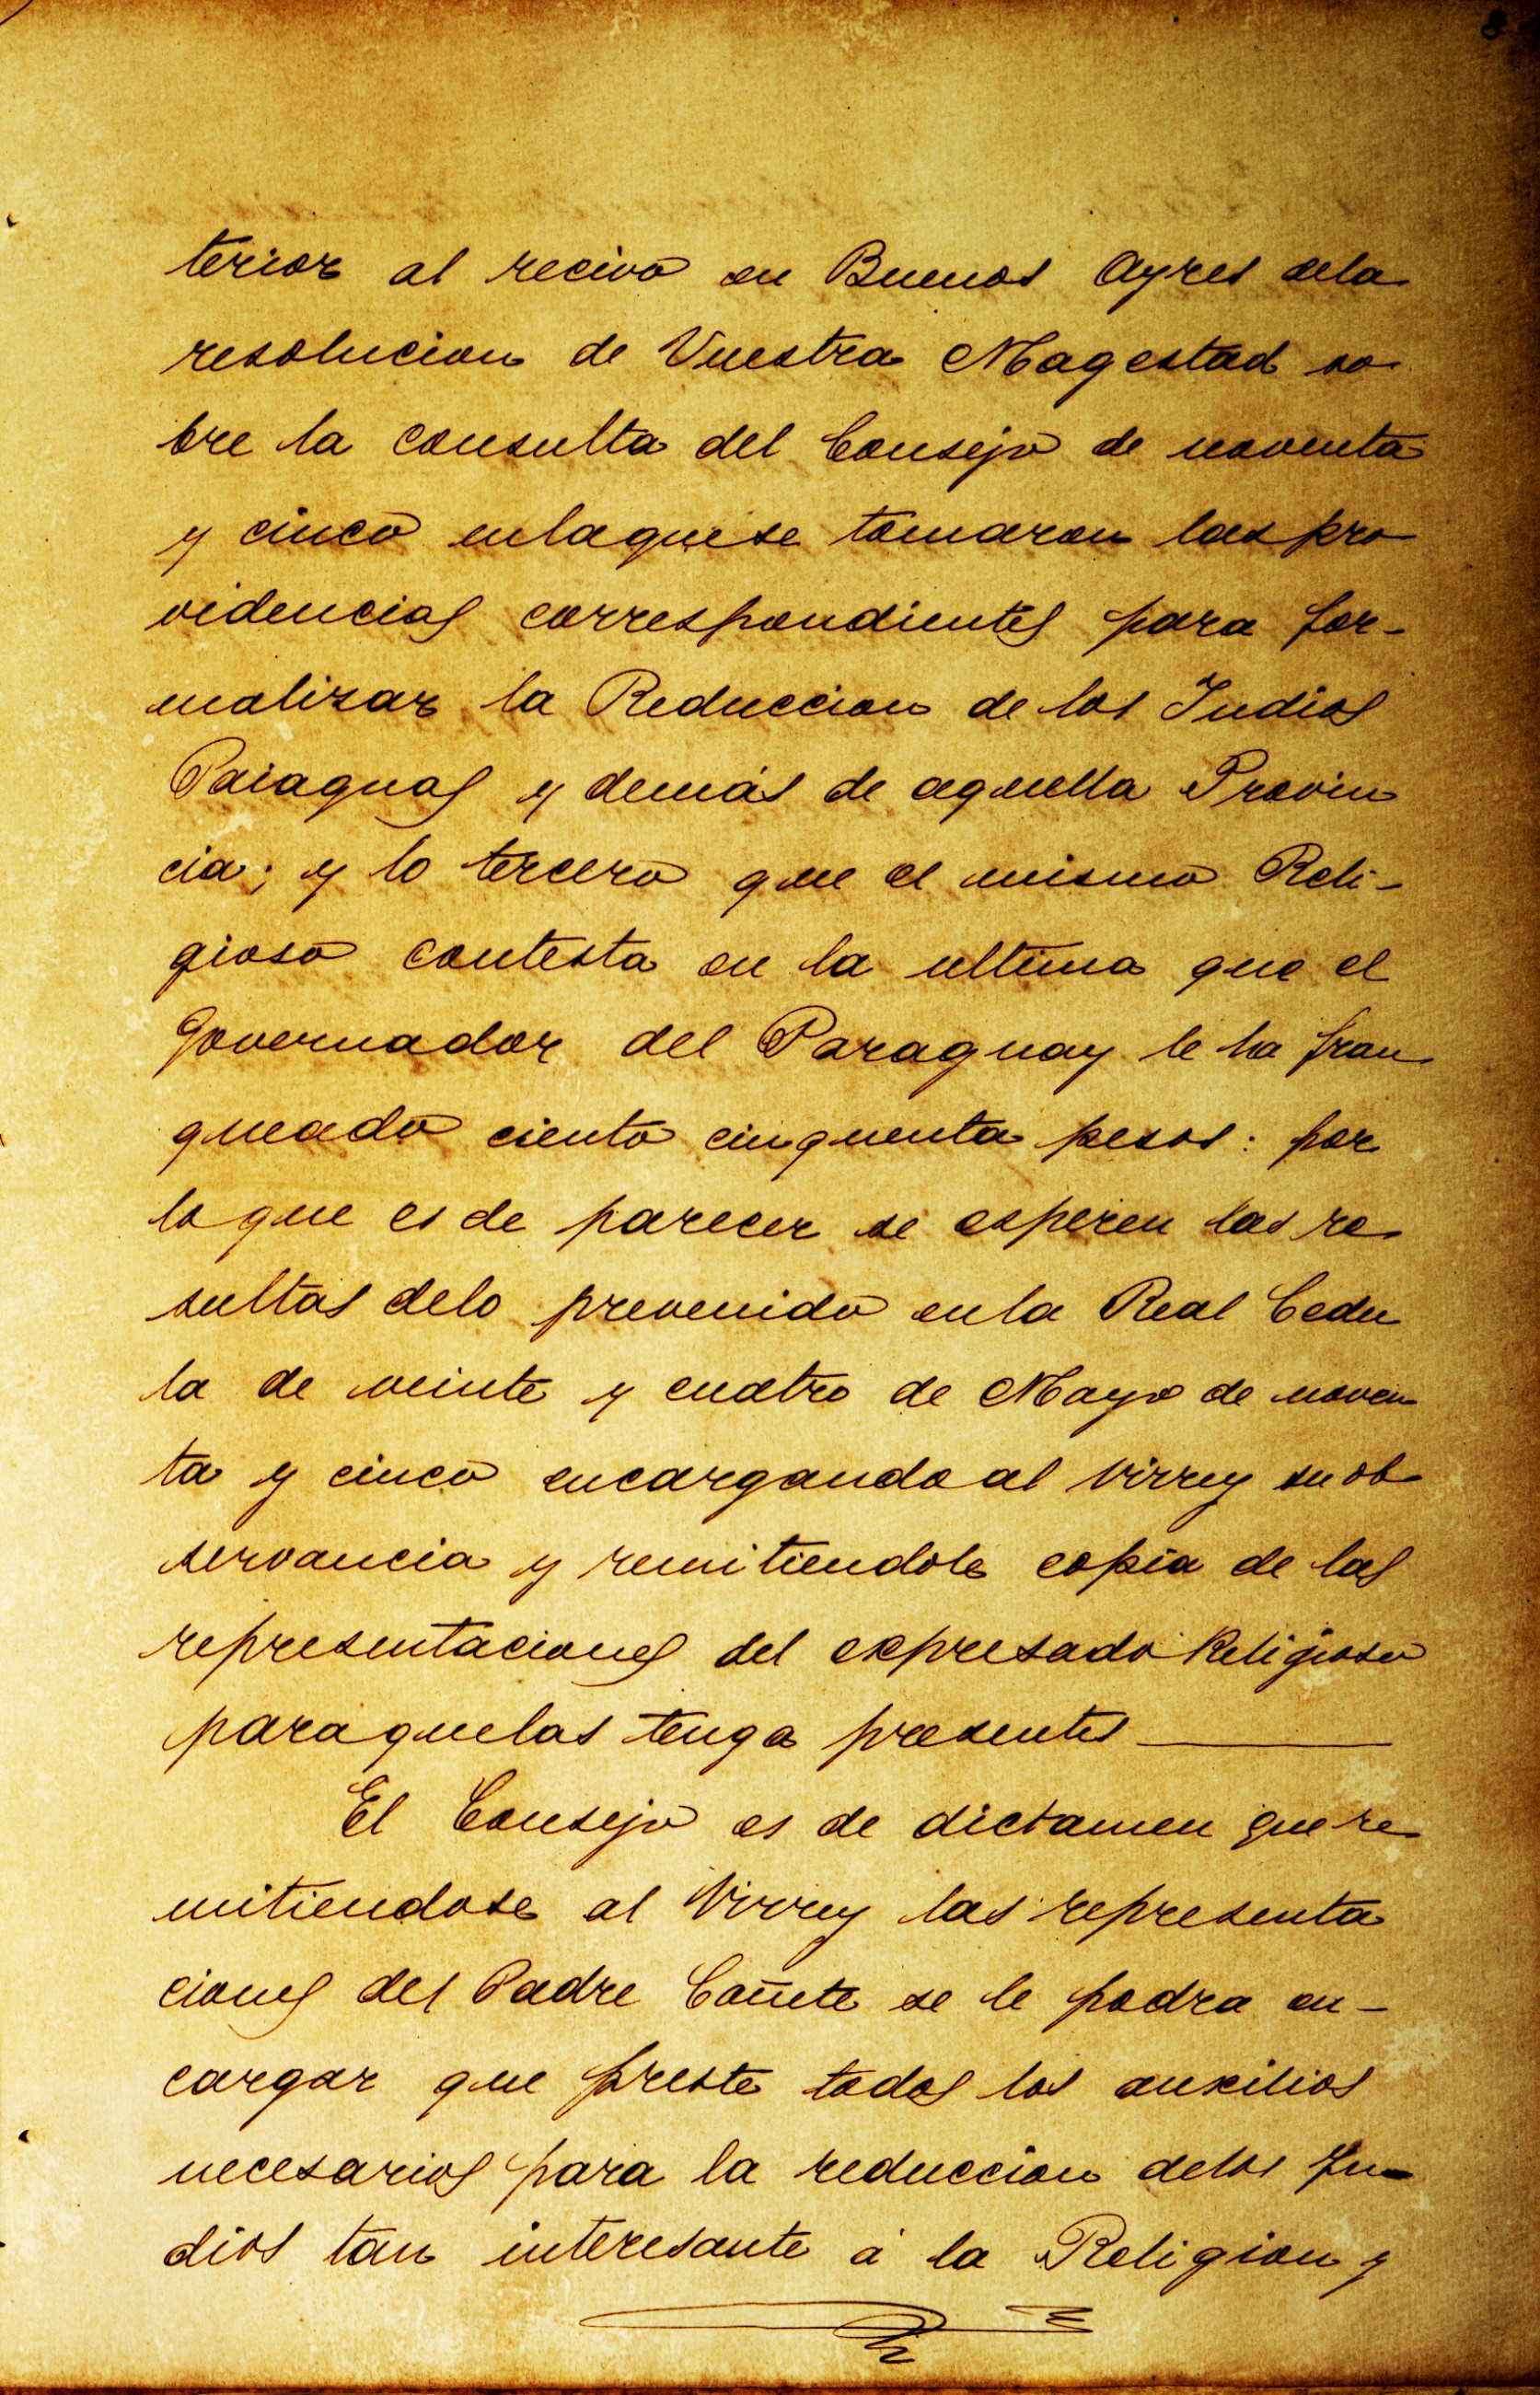 terior al recivo en Buenos Ayres dela
resolucion de Vuestra Magestad so-
bre la consulta del Consejo de noventa
y cinco enlaquese tomaron las pro
videncias correspondientes para for-
malizar la Reduccion de los Indios
Paiaguas y demás de aquella Provin
cia; y lo tercero que el mismo Reli-
gioso contesta en la ultima que el
Governador del Paraguay le ha fran
queado ciento cinquenta pesos: por
lo que es de parecer se esperen las re-
sultas delo prevenido enla Real Cedu
la de veinte y cuatro de Mayo de noven
ta y cinco encargando al Virrey su ob
servancia y remitiendole copia de las
representaciones del expresado Religioso
paraquelas tenga presentes
El Consejo es de dictamen que re-
mitiendose al Virrey las representa
ciones del Padre Cañete se le podra en-
cargar que preste todos los auxilios
necesarios para la reduccion delos In-
dios tan interesante á la Religion y